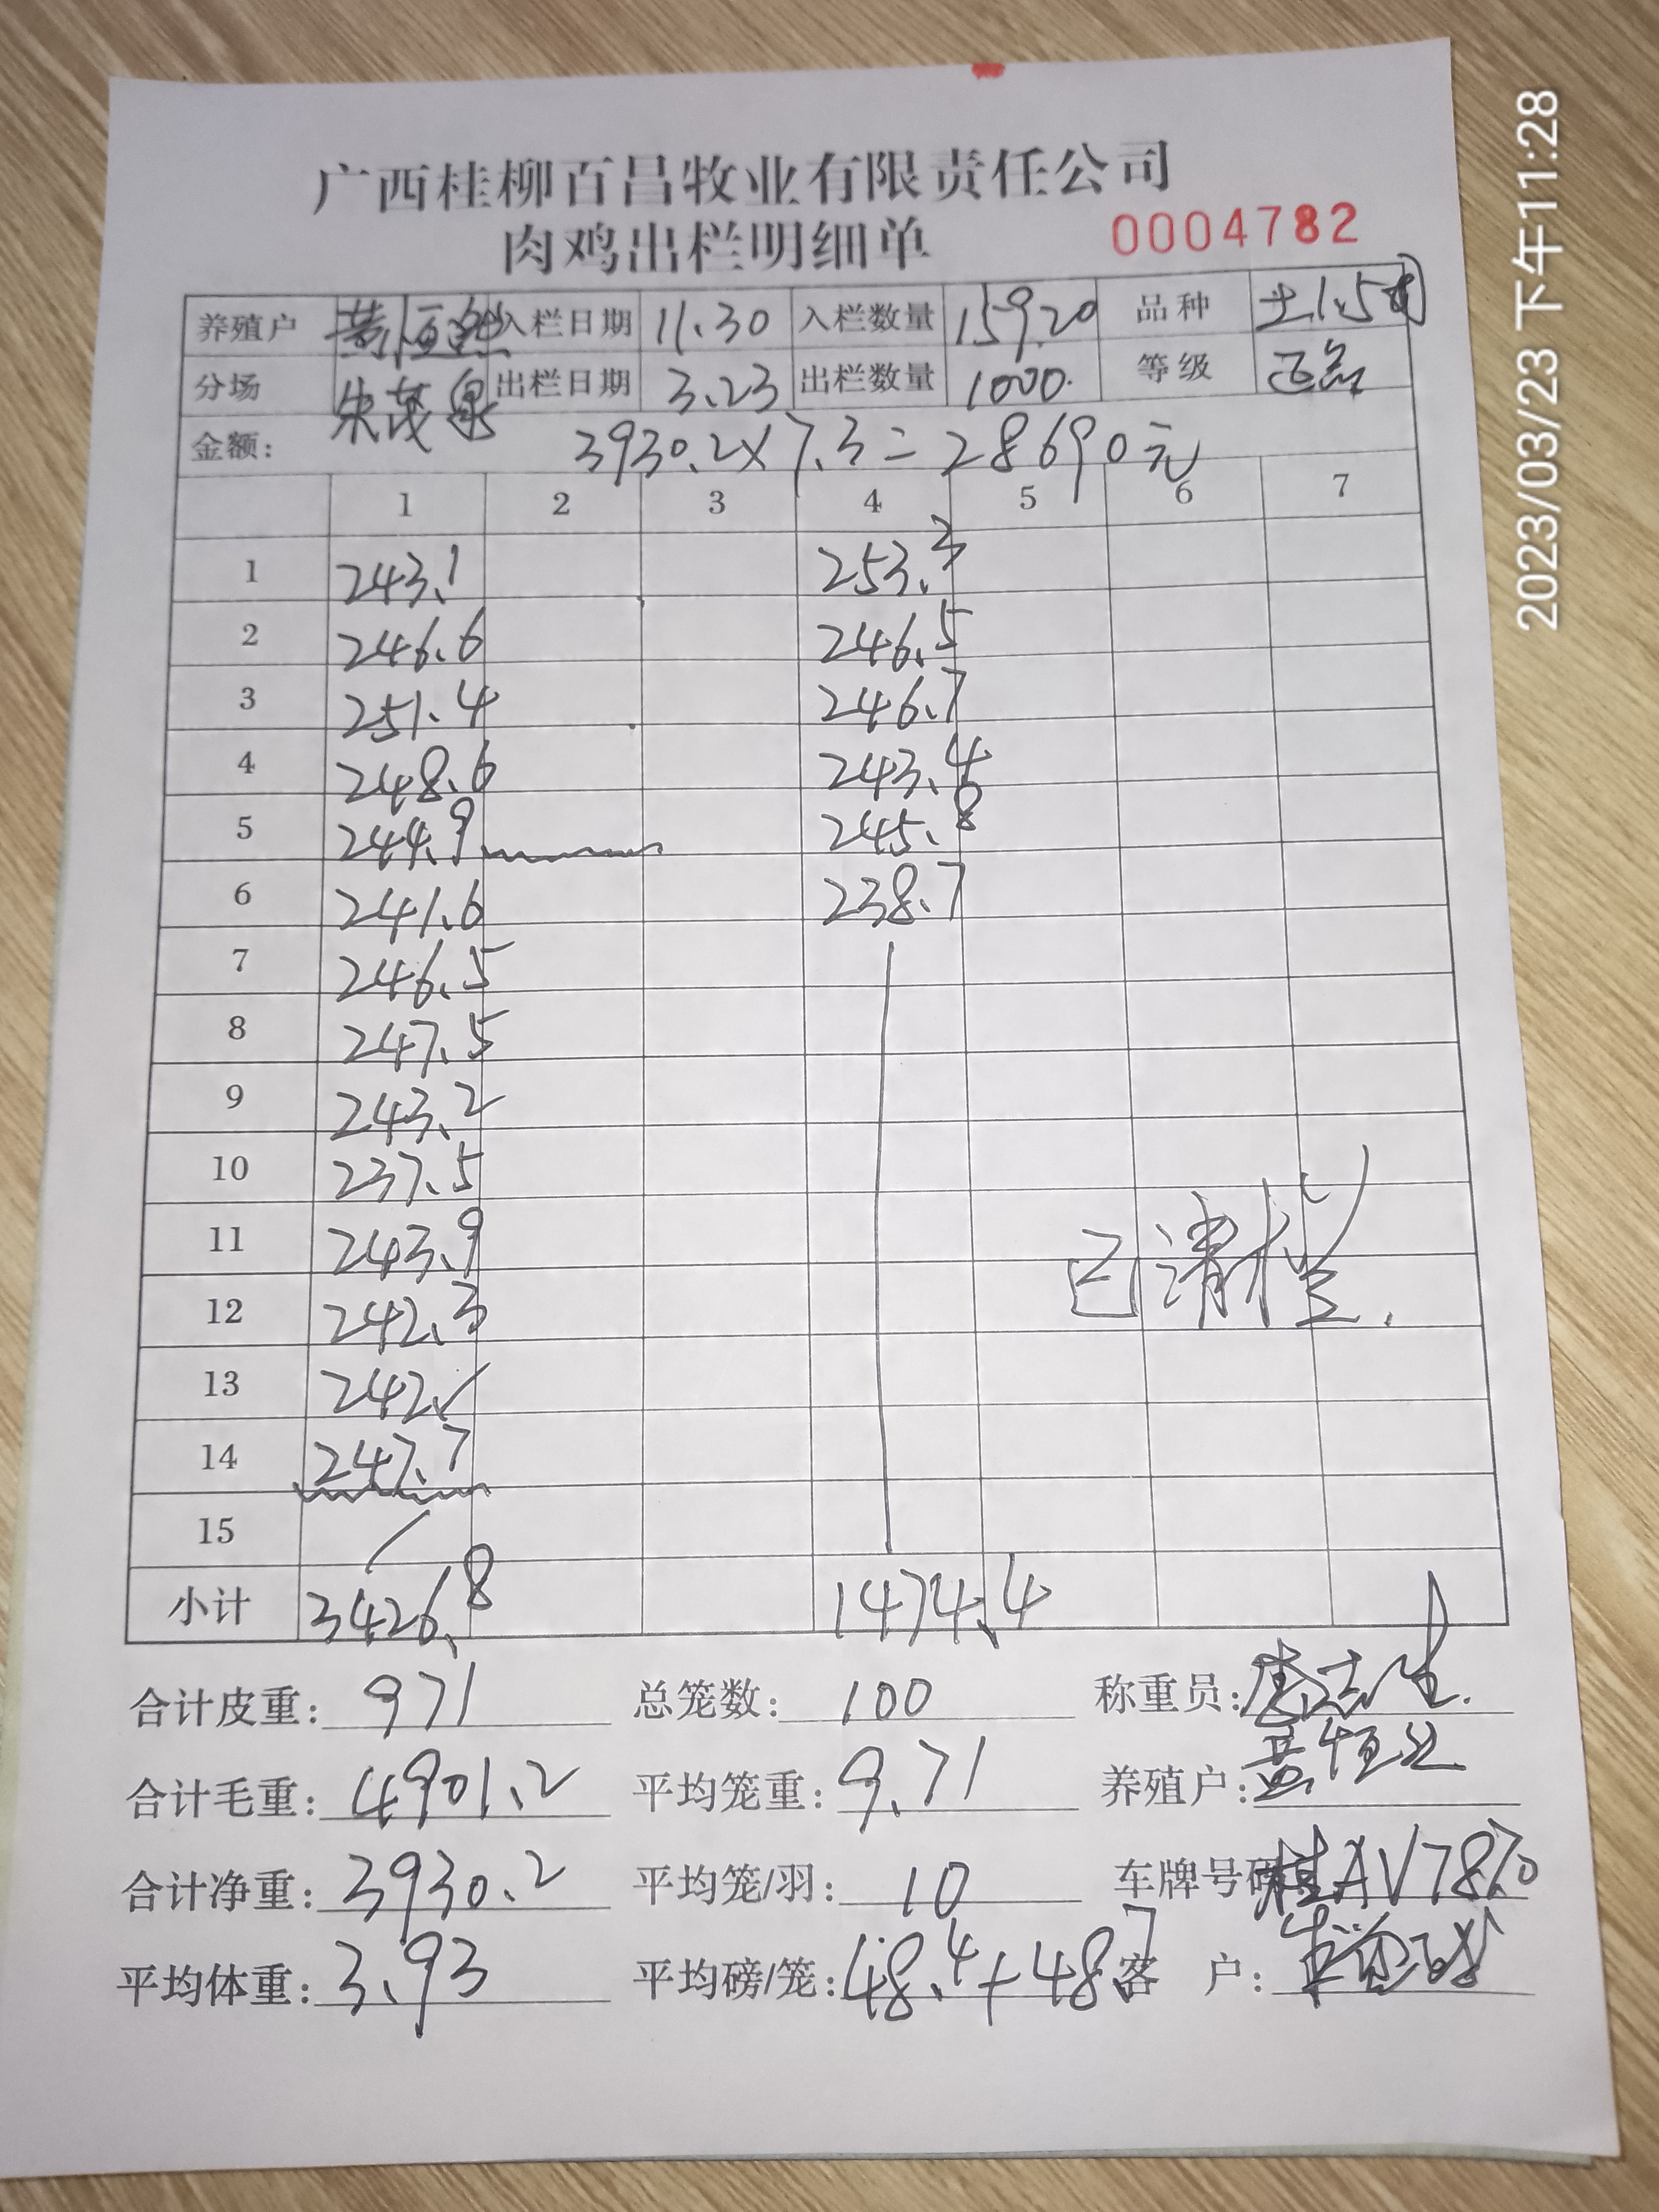 广西桂柳百昌牧业有限责任公司
肉鸡出栏明细单 0004782
养殖户 入栏日期 11.30 入栏数量 15920 品种 土1.5
分场 朱茂泉 出栏日期 3.23 出栏数量 1000. 等级 正品
金额: 3930.2×7.3=28690元
1 2 3 4 5 6 7
1 243.1 253.3
2 246.6 246.5
3 251.4 246.7
4 248.6 243.4
5 244.9 245.8
6 241.6 238.7
7 246.5
8 247.5
9 243.2
10 237.5
11 243.9
12 242.3
13 242.✓
14 247.7
15
已清栏.
小计 3426.8 1474.4
合计皮重: 971 总笼数: 100 称重员:
合计毛重: 4901.2 平均笼重: 9.71 养殖户:
合计净重: 3930.2 平均笼/羽: 10 车牌号码 桂AV7870
平均体重: 3.93 平均磅/笼: 48.4+48.7 客 户:
2023/03/23 下午11:28